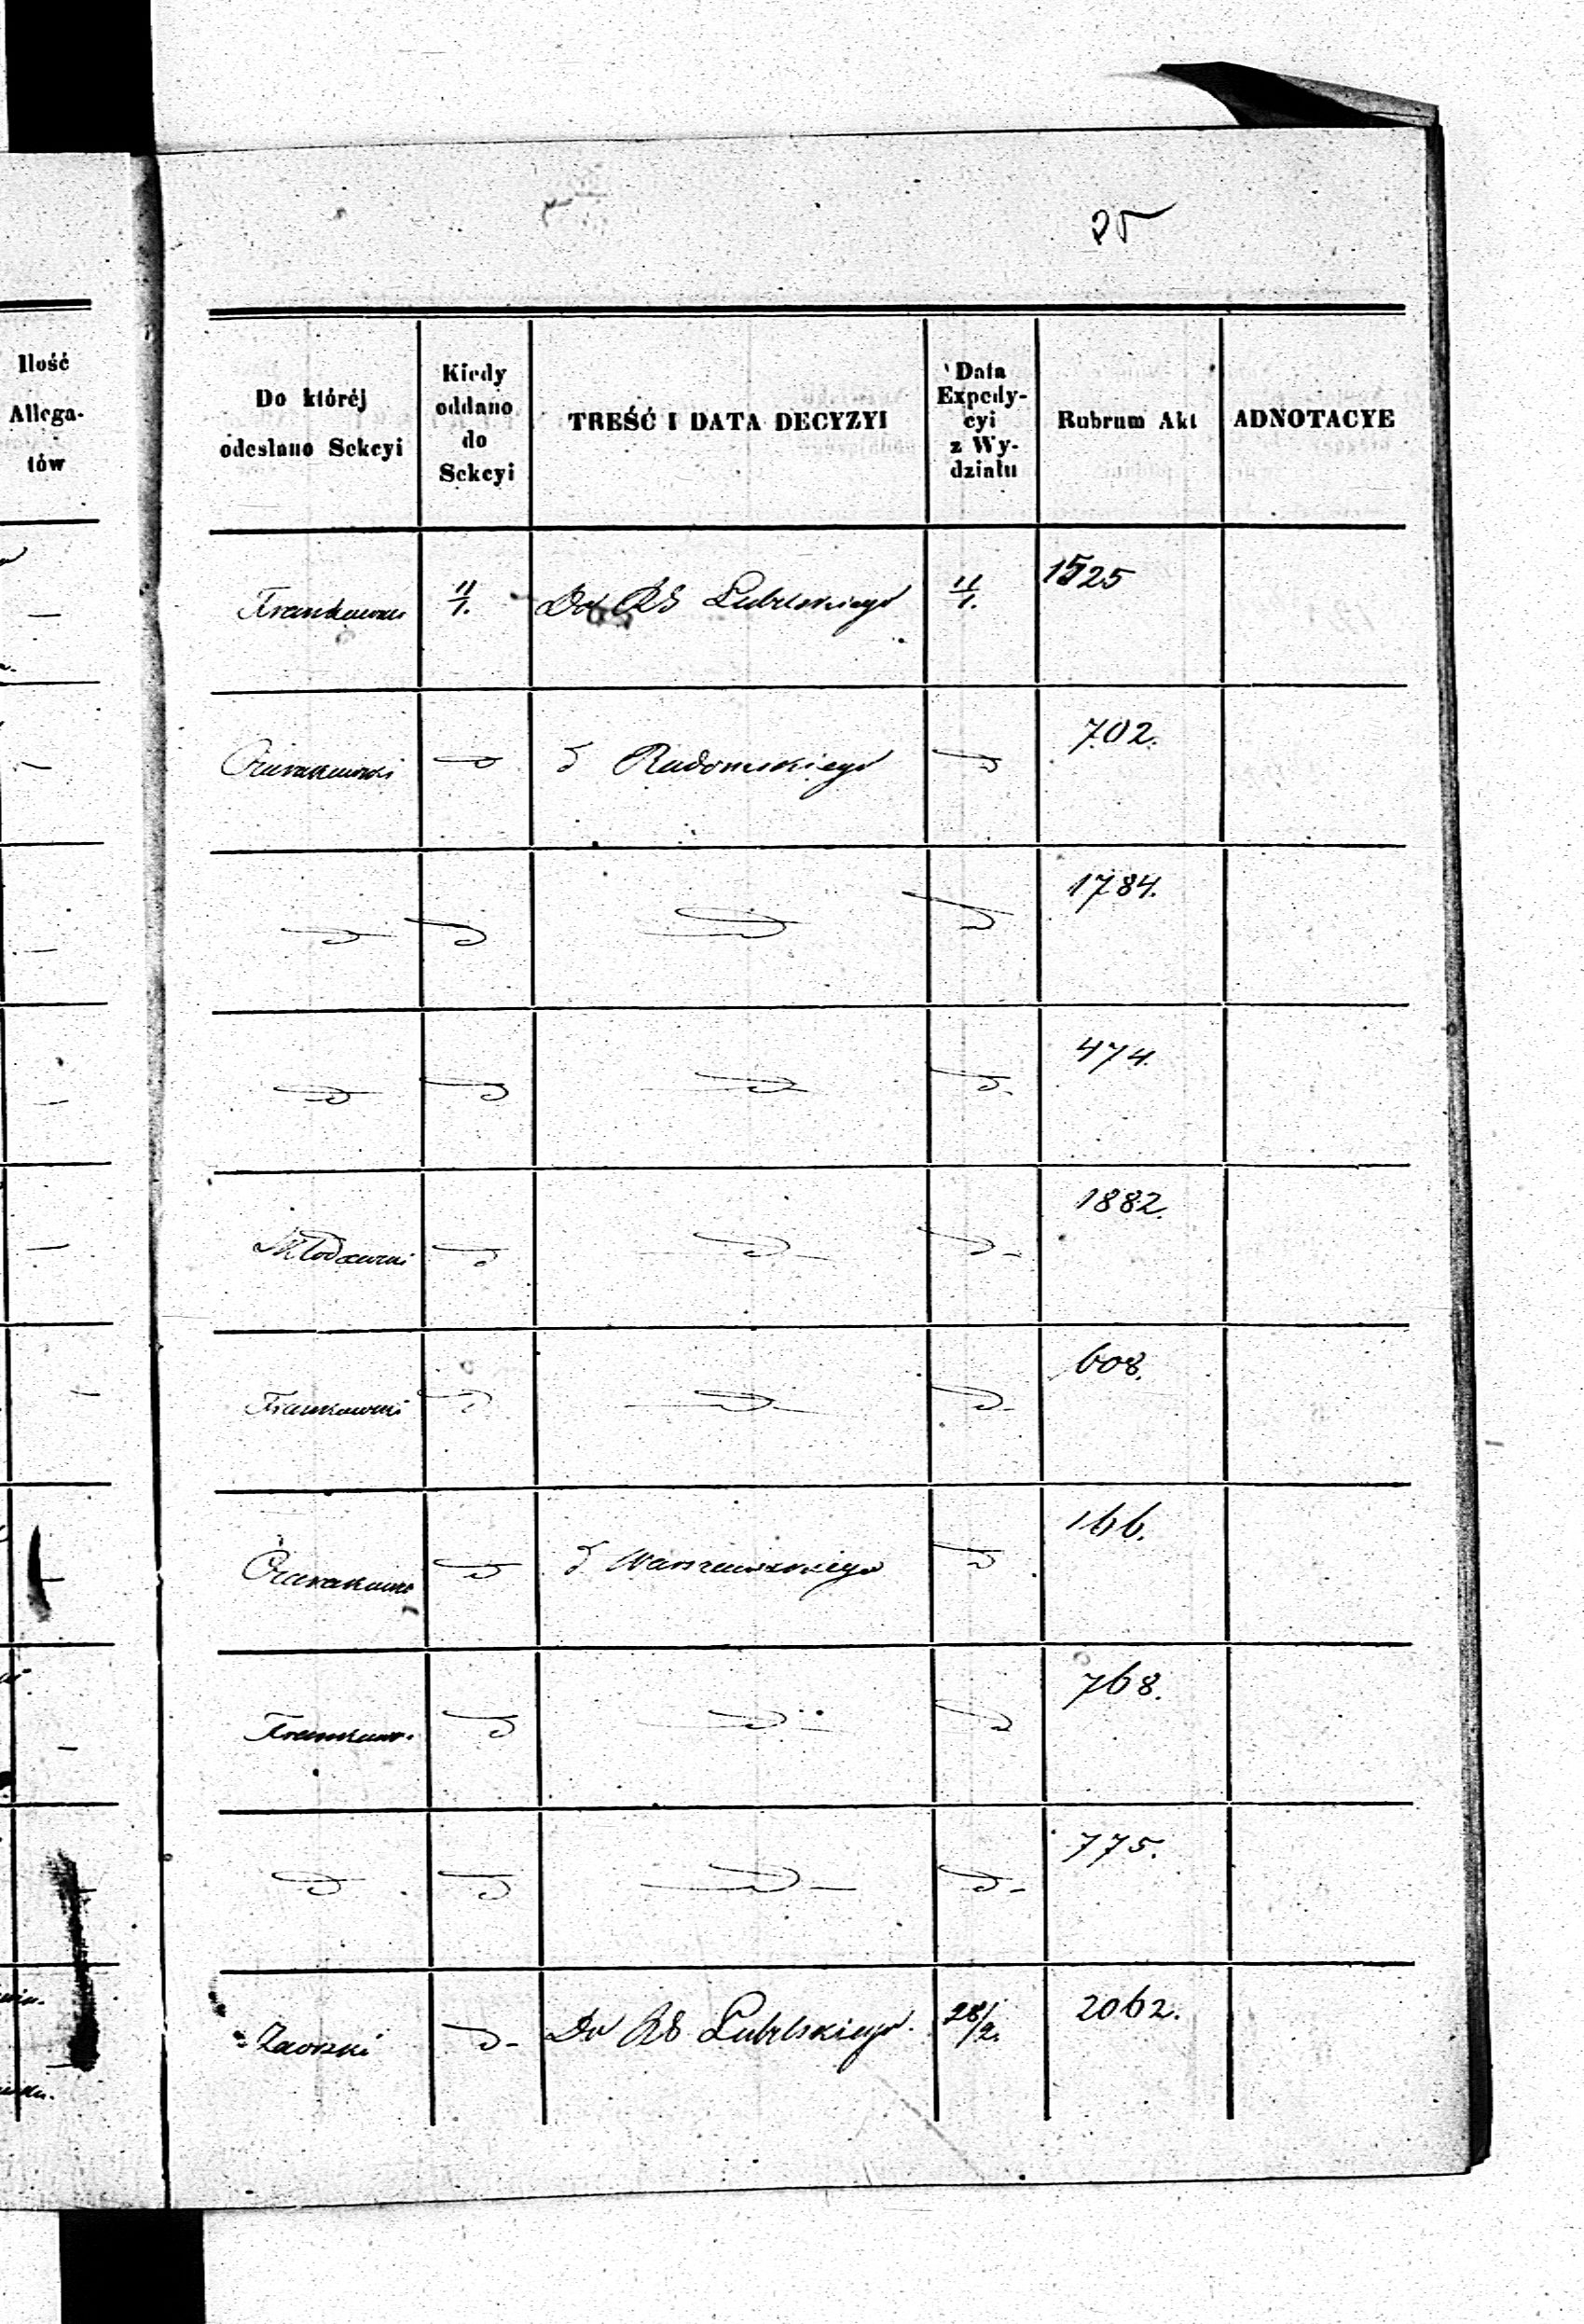 25
Ilość
Allega-
tów
Do któréj
odesłano Sekcyi
Kiedy
oddano
do
Sekcyi
TREŚĆ I DATA DECYZYI
Data
Expedy-
cyi
z Wy-
działu
Rubrum Akt
ADNOTACYE
Frankowski 11/1. Do RG Lubelskiego 11/1. 1525
d Radomskiego 702.
1784.
474.
1882.
Frankowski 608.
d Warszawskiego 166.
Frankow. 768.
775.
Zaorski d- Do RG Lubelskiego. 28/2. 2062.